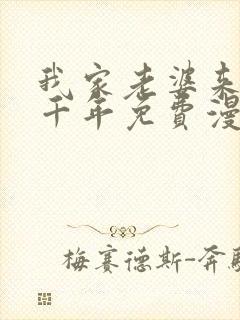 我家老婆来
千年免费漫
梅赛德斯-奔驰